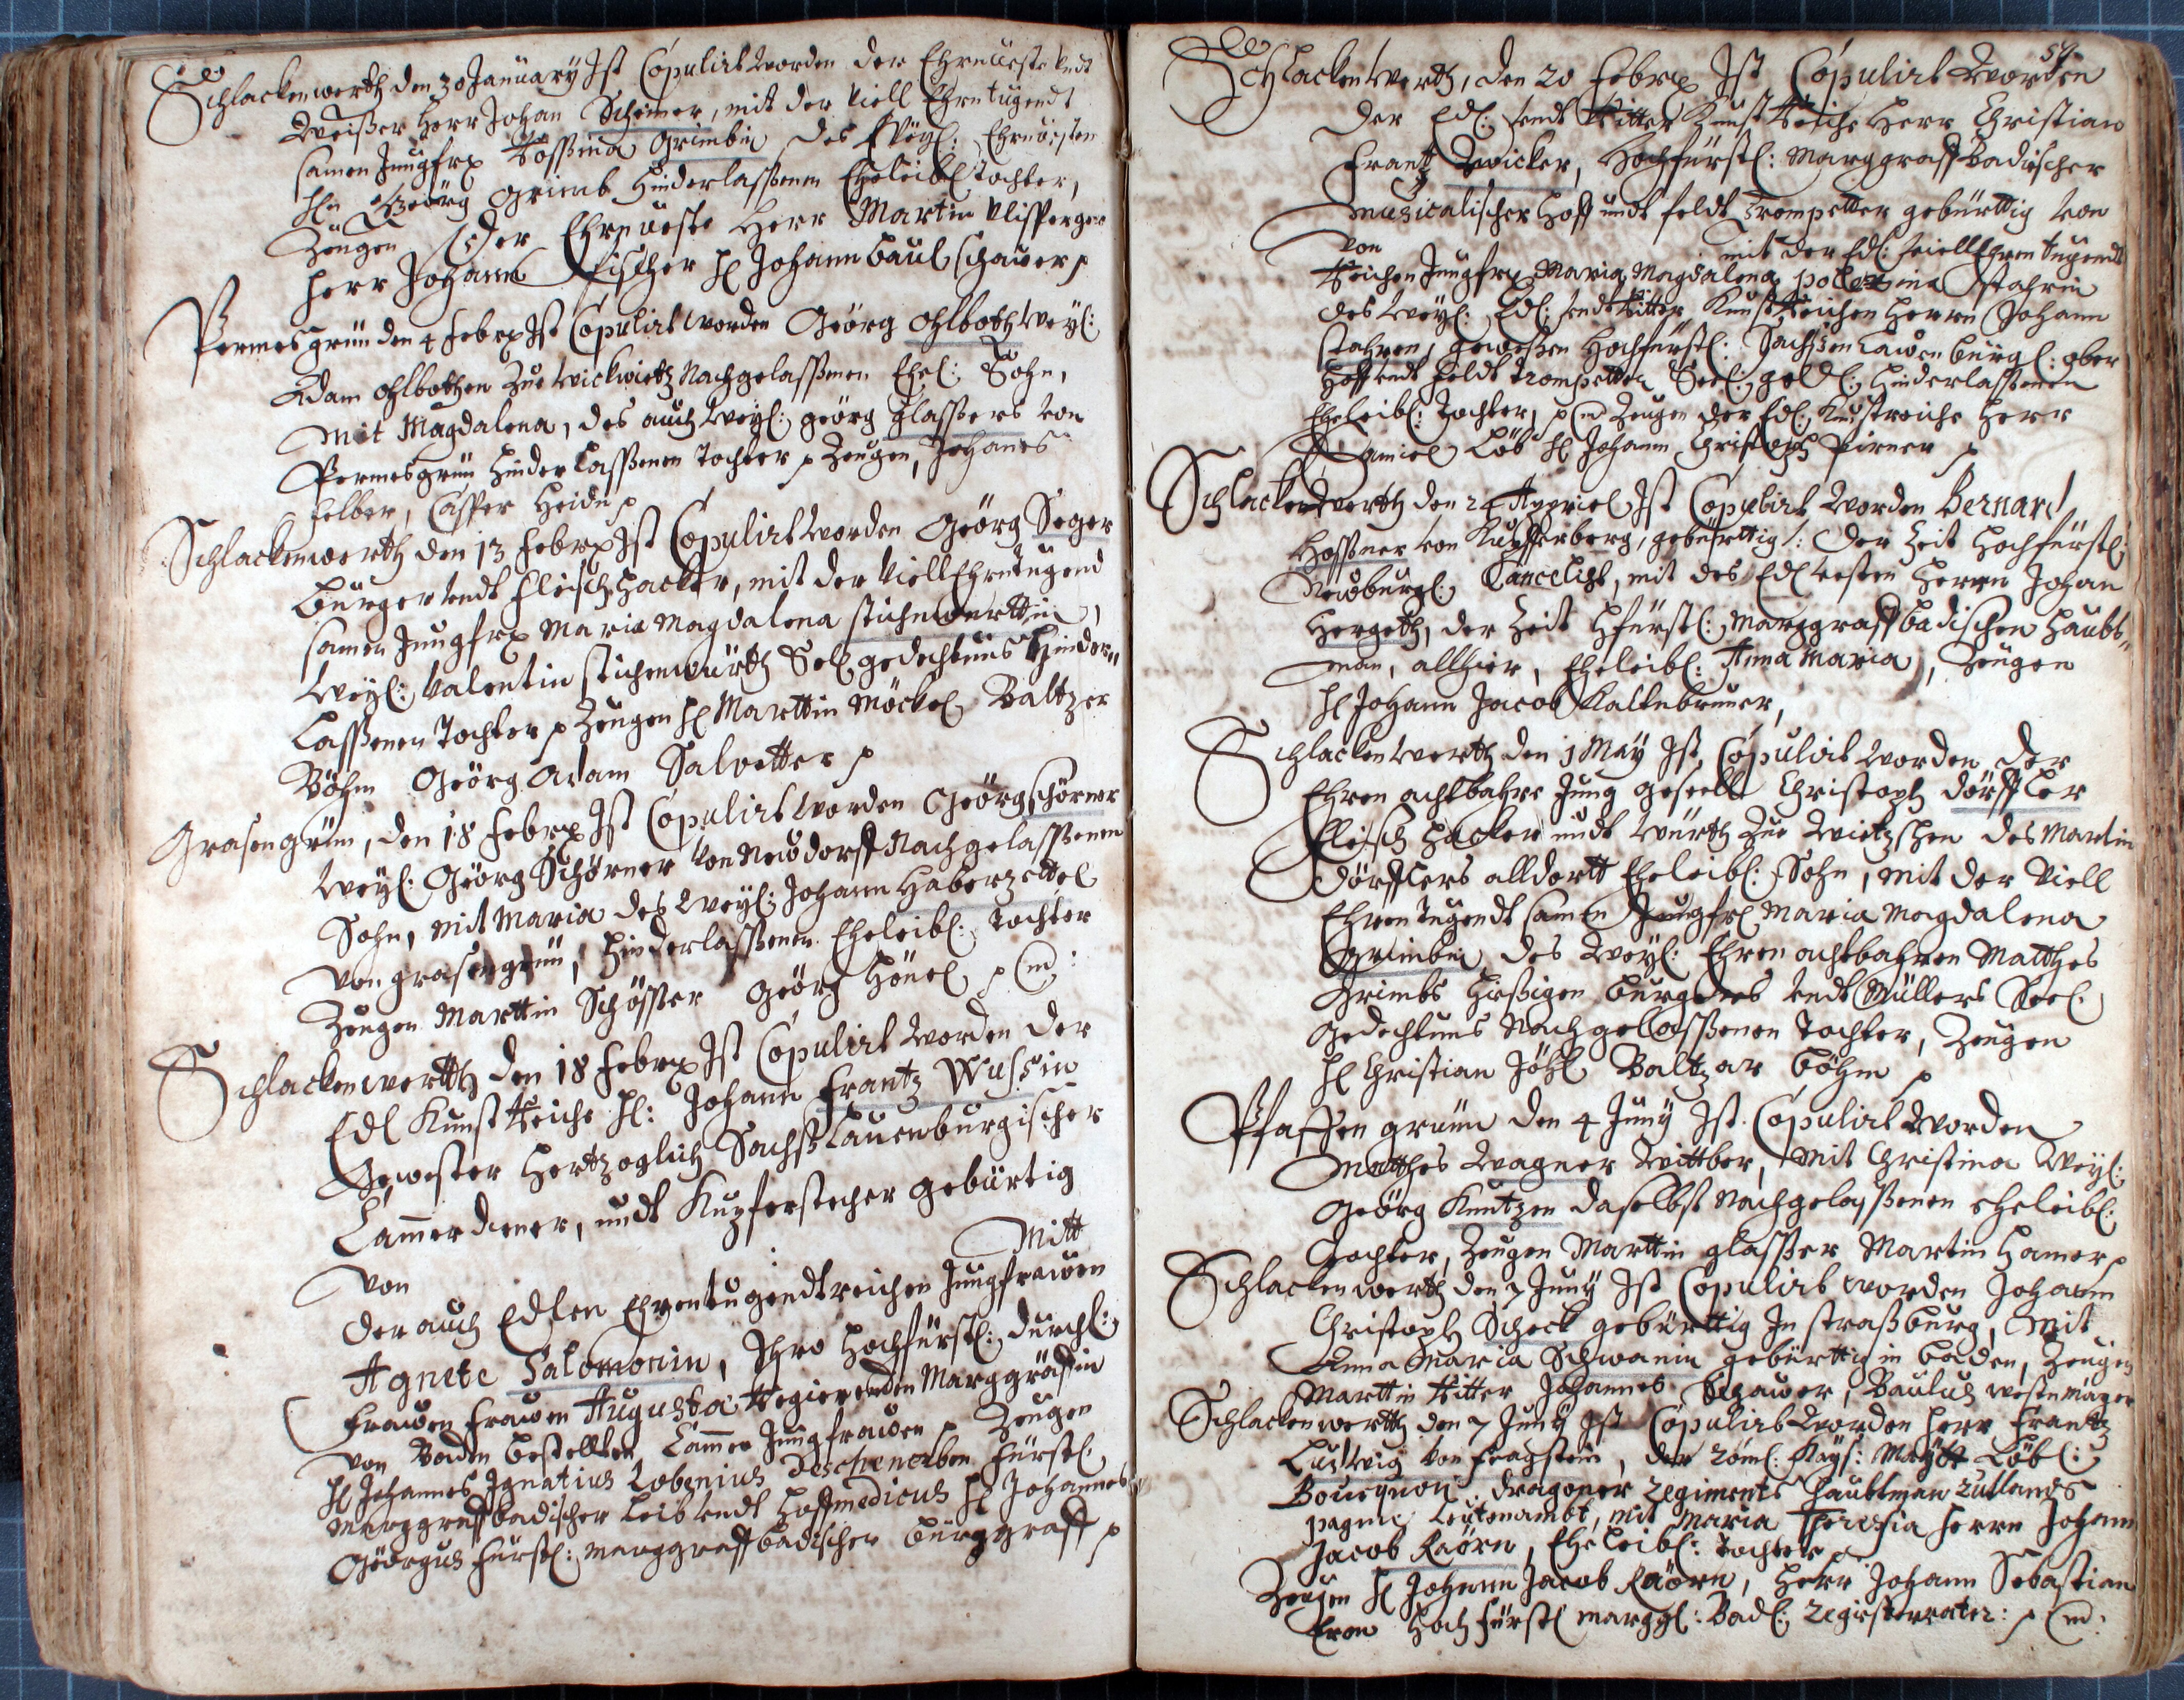 Schlackenwerth den 30 January Ist Copulirt worden der Ehrnueste Undt
Weißer Herr Johan Scheiner, mit der Viell Ehrntugendt
samen Jungfr. Rossina Grimbin des Weyl: Ehrnuesten
Hn Geörg Grimb Hinderlassenen Eheleibl Tochter,
Zeugen der Ehrnueste Herr Martin
Herr Johannes Fischer H Johann Paul Schauer
Permesgrün den 4 Febr. Ist Copulirt worden Geörg Ohlboth Weyl:
Adam Ohlbothen Zue Wickwitz Nachgelassenen Ehel: Sohn,
Mit Magdalena, des auch Weyl: Geörg Glassers Von
Permesgrün Hinderlassenen Tochter Zeugen, Johanes
Felber, Casper Heidn
Schlackenwerth den 13 Febr. Ist Copulirt worden Geörg Seger
Burger Undt Fleischhacker, mit der Viell Ehrntugend
samen Jungfr. Maria Magdalena Stichenwürttin,
Weyl: Valentin Stichenwürth Sel gedechtnus Hinder-
Lassenen Tochter Zeugen H Marttin Möckel Baltzer
Böhm Geörg Adam Salvetter
Grasengrün, den 18 Febr. Ist Copulirt worden Geörg Schörner
Weyl: Geörg Schörner Von Neudorff Nachgelassenen
Sohn, Mit Maria des Weyl: Johann Haberzettel
Von Grasengrün, Hinderlassenen Eheleibl: Tochter
Zeugen Marttin Schösser Geörg Hönel
Schlackenwertth den 18 Febr. Ist Copulirt worden der
Edl Kunst Reiche H: Johann Frantz Wussin
Gewester Hertzoglich Sachß Lauenburgischer
Cammerdiener, undt Kupferstecher gebürtig
Von Mitt
der auch Edlen Ehrentugendtreichen Jungfrawen
Agnete Salomonin, Ihro Hochfürstl: Durchl:
Frawen Frawen Augusta Regierenden Marggräffin
Von Baden bestellten Cammer Jungfrawen Zeugen
H Johannes Ignatius Lobenius Fürstl
Marggraffbadischer Leib Undt Hoffmedicus H Johannes
Geörgus Fürstl: Marggraffbadischer Burggraff
54
Schlackenwerth, den 20 Febr. Ist Copulirt worden
der Edl: Undt Ritter Kunst Reiche Herr Christian
Frantz Wicker, Hochfürstl: Marggraff Badischer
Musicalischer Hoff undt Feldt Trompetter gebürttig von
Von mit der Edl: Viell Ehren tugendt
Reichen Jungfr. Maria Magdalena Stahrin
des Weyl: Edl: Undt Ritter Kunst Reichen Herrn Johann
Stahren, gewesen Hochfürstl: Sachssen Lawenburgl: Ober
Hoff Undt Feldt Trompetter Seel: Hinderlassenen
Eheleibl: Tochter, Zeugen der Edl: Kunstreiche Herr
Daniel Löb H Johann Christoph Pirner
Schlackenwerth den 24 Appriel Ist Copulirt worden Bernard
Hossner Von Kupfferberg, gebürttig: der Zeit Hochfürstl:
Newburgl: Cancelist, mit des Edl Vesten Herrn Johan
Hergeth, der Zeit Hfürstl: Marggraffbadischen Haubt-
man, allhier, Eheleibl: Anna Maria, Zeugen
H Johann Jacob Kaltnbruner,
Schlackenwerth den 1 May Ist Copulirt worden der
Ehren achtbahre Jung geselle Christoph Dörffler
Fleischhacker undt Würth Zue Wietzschen des Martin
Dörfflers alldortt Eheleibl: Sohn, mit der Viell
Ehren tugendt samen Jungfr Maria Magdalena
Grimbin des Weyl: Ehren achtbahren Matthes
Grimbs Hießigen Burgers Undt Müllers Seel:
Gedechtnus Nachgelassenen Tochter, Zeugen
H Christian Baltzar Böhm
Pfaffengrünn den 4 Juny Ist Copulirt worden
Matthes Wagner Wittber, Mit Christina Weyl:
Geörg Kuntzen daselbst Nachgelassenen eheleibl:
Tochter, Zeugen Marttin Glasser Martin Hamer
Schlackenwerth den 7 Juny Ist Copulirt worden Johann
Christoph Scheck gebürttig In Straßburg, Mit
Anna Maria Schwanin gebürttig in Baden, Zeugen
Marttin Ritter Johannes Schauer, Paulus
Schlackenwertth den 7 Juny Ist Copulirt worden Herr Frantz
Ludwig Von Fragstein, der Röml: Kays: Maytt Löbl:
Bouquoi Dragoner Regiments Haubtman
Leutenambt, mit Maria Theresia Herrn Johann
Jacob Raörn, Eheleibl: Tochter
Zeugen H Johann Jacob Raörn, Herr Johann Sebastian
Hoch Fürstl Marggl: Badl: Registerrator: